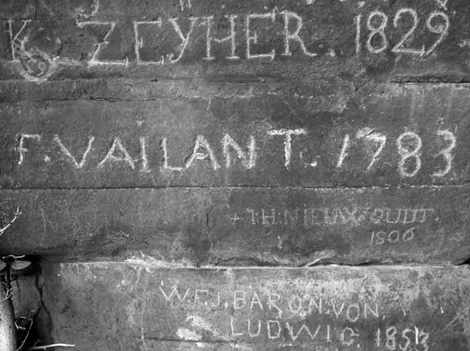 K. ZEYHER. 1829
F. VAILANT. 1783
1806
W.F.J. BARON. VON.
LUDWIG. 1853